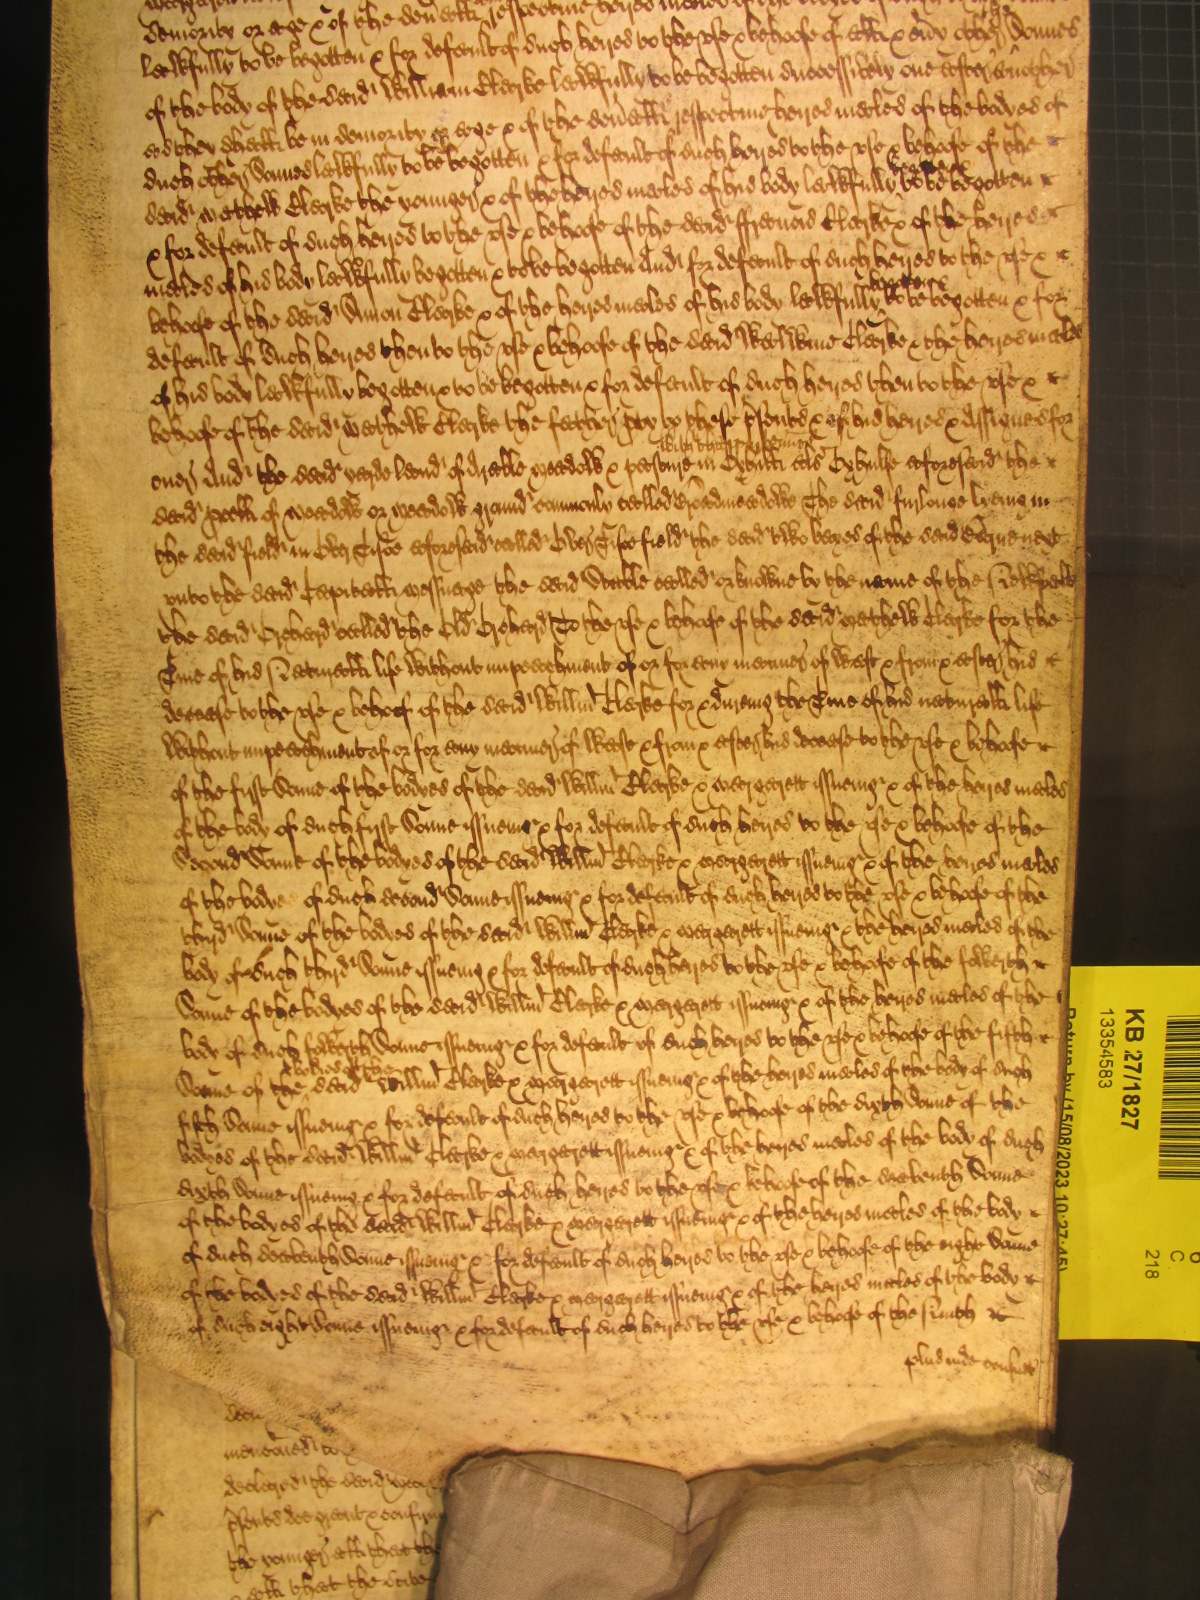 senioritie of age & of the severall respective heires males of the
lawfully to be begotten & for default of such heires to the use & behoofe of all & every other Sonnes
of the body of the said William Clarke lawfully to be begotten successively one after another
as they shall be in seniority of age & of the severall respective heires males of the bodyes of
such other Sonnes lawfully to be begotten & for default of such heires to the use & behoofe of the
said Mathew Clarke the younger & of the heires males of his body lawfully to be begotten
& for default of such heires to the use & behoofe of the said Francis Clarke & of the heires
males of his body lawfully begotten & to be begotten And for default of such heires to the use &
behoofe of the said Simon Clarke & of the heires males of his body lawfully begotten & to be begotten & for
default of such heires then to the use & behoofe of the said Clarke & the heires males
of his body lawfully begotten & to be begotten & for default of such heires then to the use &
behoofe of the said Mathew Clarke the father pty to these psents & of his heires & Assignes for
ever And the said yarde land of arable meadow & pasture in als aforesaid the
with thappurtennces
said peell of meadow or meadow ground comonly called Broadmeadowe The said furlonge lyeing in
the said field in Over Tisoe aforesaid called Over Tisoe field the said two bayes of the said
unto the said Capitall Messuage the said Stable called or knowne by the name of the
the said Orchard called the Old Orchard To the use & behoofe of the said Mathew Clarke for the
Tme of his Naturall life Without impeachment of or for any manner of Wast & from & after his
decease to the use & behoof of the said Willm Clarke for & dureing the Tme of his naturall life
Without impeachment of or for any manner of Wast & from & after his decease to the use & behoofe
of the first Sonne of the bodyes of the said Willm Clarke & Margarett issueing & of the heires males
of the body of such first Sonne issueing & for default of such heires to the use & behoofe of the
Second Sonne of the bodyes of the said Willm Clarke & Margarett issueing & of the heires males
of the bodye of such second Sonne issueing & for default of such heires to the use & behoofe of the
third Sonne of the bodyes of the said Willm Clarke & Margarett issueing & the heires males of the
body of such third Sonne issueing & for default of such heires to the use & behoofe of the fowerth
Sonne of the bodyes of the said Willm Clarke & Margarett issueing & of the heires males of the
body of such fowerth Sonne issueing & for default of such heires to the use & behoofe of the fifth
Sonne of the bodyes of the said Willm Clarke & Margarett issueing & of the heires males of the body of such
fifth Sonne issueing & for default of such heires to the use & behoofe of the sixth Sonne of the
bodyes of the said Willm Clarke & Margarett issueing & of the heires males of the body of such
sixth Sonne issueing & for default of such heires to the use & behoofe of the seaventh Sonne
of the bodyes of the said Willm Clarke & Margarett issueing & of the heires males of the body
of such seaventh Sonne issueing & for default of such heires to the use & behoofe of the eight Sonne
of the bodyes of the said Willm Clarke & Margarett issueing & of the heires males of the body
of such eight Sonne issueing & for default of such heires to the use & behoofe of the Ninth
plus inde
menconed to
declared the said
psents doe grant & confirme
the younger all that the
all that the
KB 27/1827
13354583
Return by (15/08/2023 10:27:45)
C
218